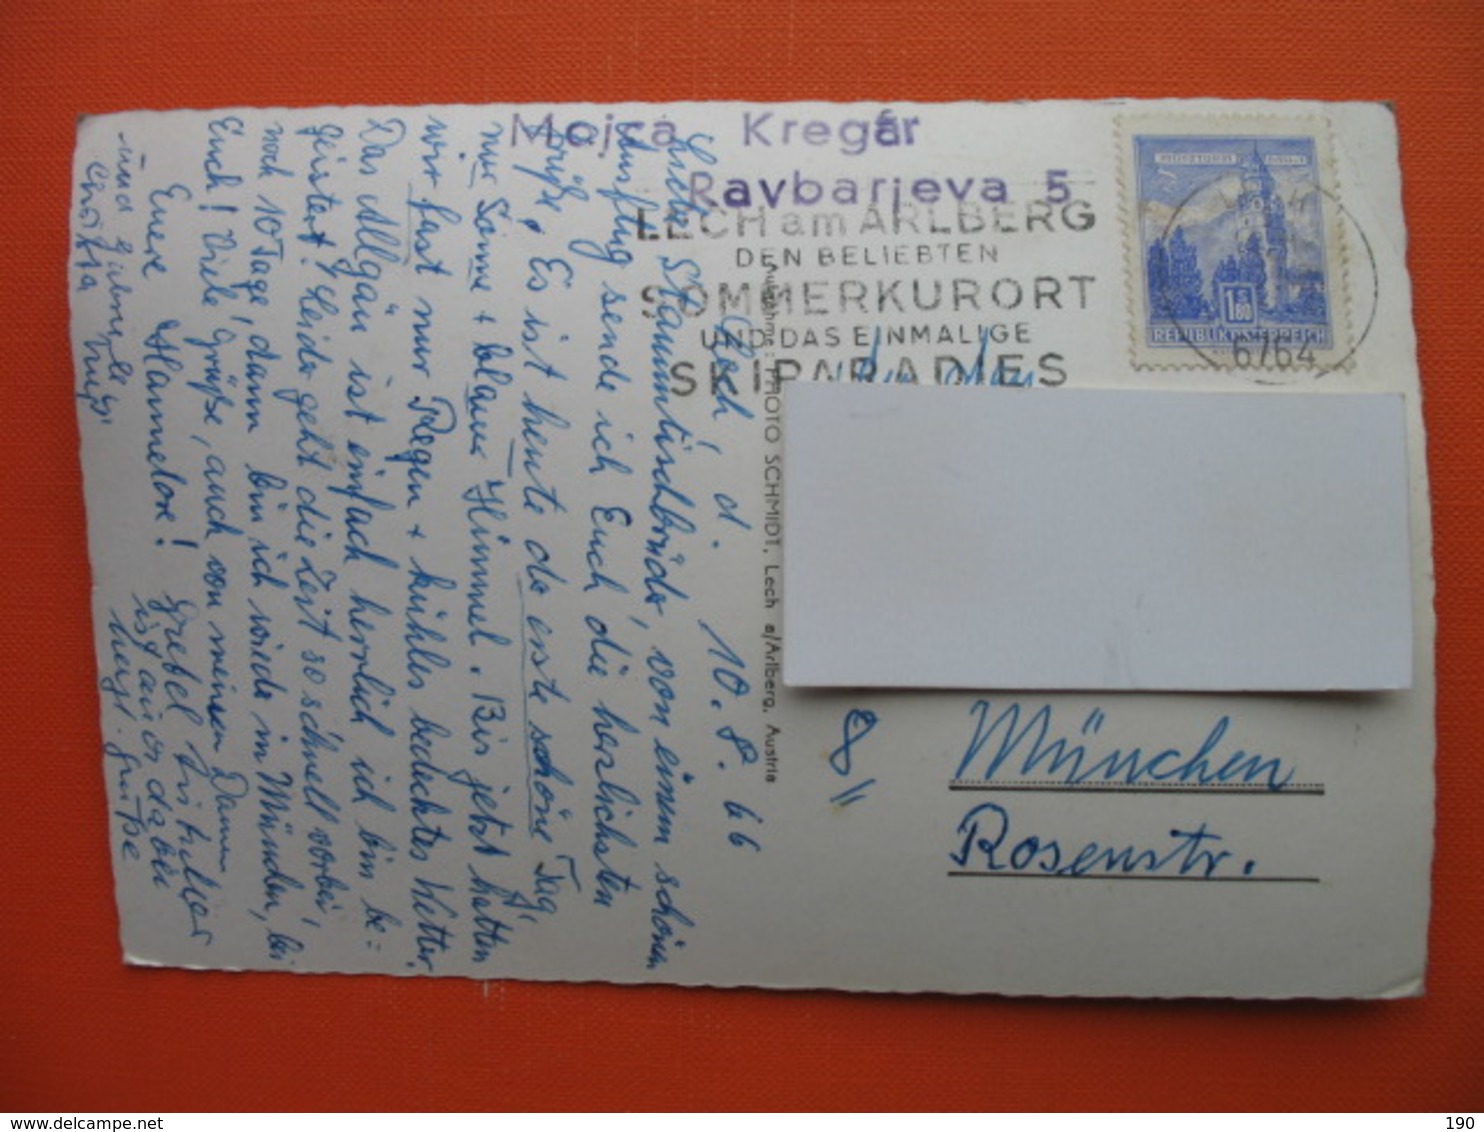 Mojca Kregar
Ravbarjeva 5
LECH am ARLBERG
DEN BELIEBTEN
SOMMERKURORT
UND DAS EINMALIGE
SKIPARADIES
1.80
REPUBLIK ÖSTERREICH
6764
Lech, d. 10. 8. 66
Liebe Stammtischbrüder, von einem schönen
Ausflug sende ich Euch die herzlichsten
Grüße. Es ist heute der erste schöne Tag,
nur Sonne + blauer Himmel. Bis jetzt hatten
wir fast nur Regen + kühles bedecktes Wetter.
Das Allgäu ist einfach herrlich ich bin be=
geistert! Leider geht die Zeit so schnell vorbei,
noch 10 Tage, dann bin ich wieder in München, bei
Euch! Viele Grüße, auch von meinen Damen
Euere Hannelore!
ist auch dabei
Christa
Aufnahme: PHOTO SCHMIDT, Lech a/Arlberg, Austria
An den
8
München
Rosenstr.
190